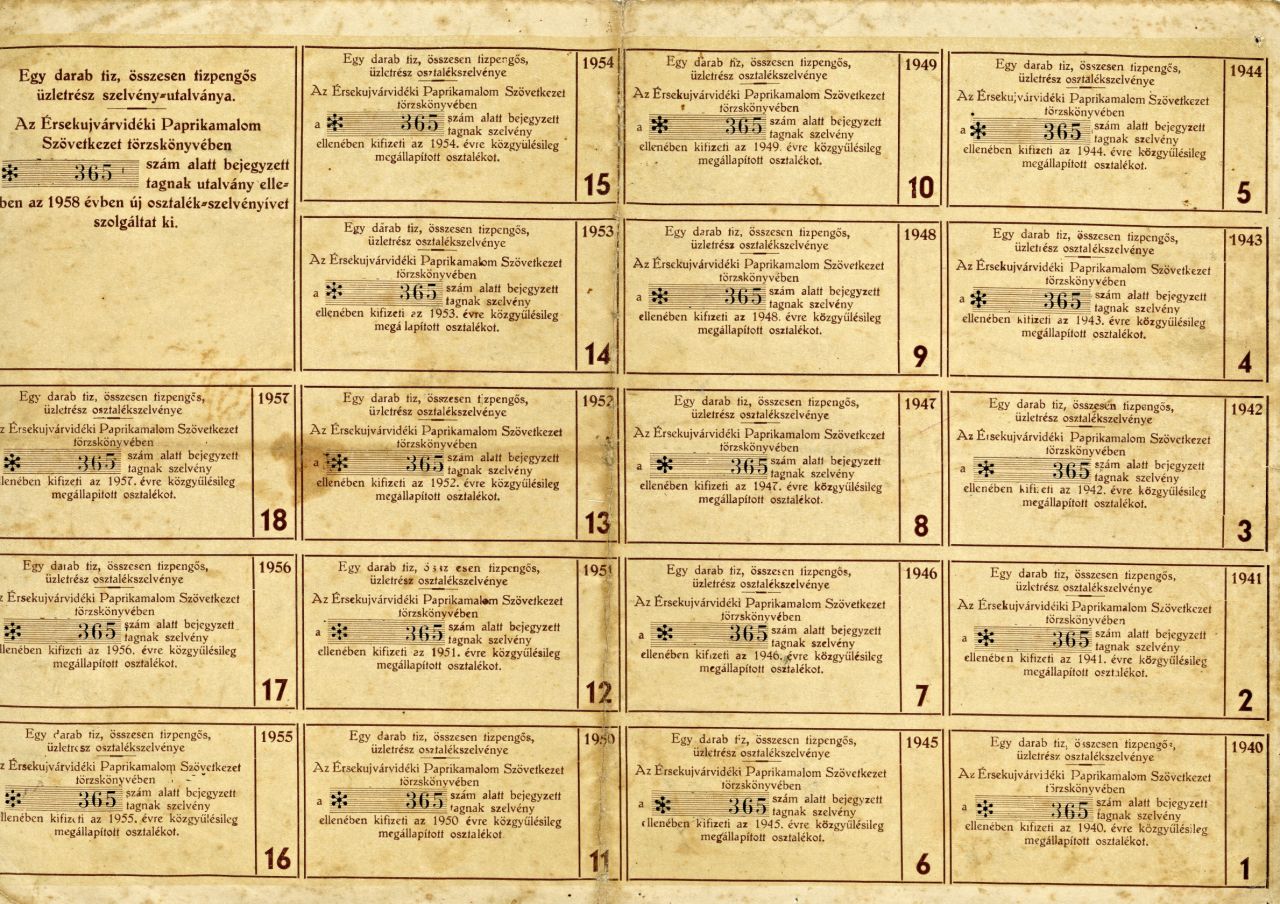 Egy darab tiz, összesen tizpengős
üzletrész szelvény-utalványa.
Az Érsekujvárvidéki Paprikamalom
Szövetkezet törzskönyvében
* 365 szám alatt bejegyzett
tagnak utalvány elle-
ben az 1958 évben új osztalék-szelvényívet
szolgáltat ki.
Egy darab tiz, összesen tizpengős,
üzletrész osztalékszelvénye
z Érsekujvárvidéki Paprikamalom Szövetkezet
törzskönyvében
* 365 szám alatt bejegyzett
tagnak szelvény
llenében kifizeti az 1957. évre közgyűlésileg
megállapított osztalékot.
1957
18
Egy darab tiz, összesen tizpengős,
üzletrész osztalékszelvénye
z Érsekujvárvidéki Paprikamalom Szövetkezet
törzskönyvében
* 365 szám alatt bejegyzett
tagnak szelvény
llenében kifizeti az 1956. évre közgyűlésileg
megállapított osztalékot.
1956
17
Egy darab tiz, összesen tizpengős,
üzletrész osztalékszelvénye
z Érsekujvárvidéki Paprikamalom Szövetkezet
törzskönyvében
* 365 szám alatt bejegyzett
tagnak szelvény
llenében kifizeti az 1955. évre közgyűlésileg
megállapított osztalékot.
1955
16
Egy darab tiz, összesen tizpengős,
üzletrész osztalékszelvénye
Az Érsekujvárvidéki Paprikamalom Szövetkezet
törzskönyvében
a * 365 szám alatt bejegyzett
tagnak szelvény
ellenében kifizeti az 1954. évre közgyűlésileg
megállapított osztalékot.
1954
15
Egy darab tiz, összesen tizpengős,
üzletrész osztalékszelvénye
Az Érsekujvárvidéki Paprikamalom Szövetkezet
törzskönyvében
a * 365 szám alatt bejegyzett
tagnak szelvény
ellenében kifizeti az 1953. évre közgyűlésileg
megállapított osztalékot.
1953
14
Egy darab tiz, összesen tizpengős,
üzletrész osztalékszelvénye
Az Érsekujvárvidéki Paprikamalom Szövetkezet
törzskönyvében
a * 365 szám alatt bejegyzett
tagnak szelvény
ellenében kifizeti az 1952. évre közgyűlésileg
megállapított osztalékot.
1952
13
Egy darab tiz, összesen tizpengős,
üzletrész osztalékszelvénye
Az Érsekujvárvidéki Paprikamalom Szövetkezet
törzskönyvében
a * 365 szám alatt bejegyzett
tagnak szelvény
ellenében kifizeti az 1951. évre közgyűlésileg
megállapított osztalékot.
1951
12
Egy darab tiz, összesen tizpengős,
üzletrész osztalékszelvénye
Az Érsekujvárvidéki Paprikamalom Szövetkezet
törzskönyvében
a * 365 szám alatt bejegyzett
tagnak szelvény
ellenében kifizeti az 1950 évre közgyűlésileg
megállapított osztalékot.
1950
11
Egy darab tiz, összesen tizpengős,
üzletrész osztalékszelvénye
Az Érsekujvárvidéki Paprikamalom Szövetkezet
törzskönyvében
a * 365 szám alatt bejegyzett
tagnak szelvény
ellenében kifizeti az 1949. évre közgyűlésileg
megállapított osztalékot.
1949
10
Egy darab tiz, összesen tizpengős,
üzletrész osztalékszelvénye
Az Érsekujvárvidéki Paprikamalom Szövetkezet
törzskönyvében
a * 365 szám alatt bejegyzett
tagnak szelvény
ellenében kifizeti az 1948. évre közgyűlésileg
megállapított osztalékot.
1948
9
Egy darab tiz, összesen tizpengős,
üzletrész osztalékszelvénye
Az Érsekujvárvidéki Paprikamalom Szövetkezet
törzskönyvében
a * 365 szám alatt bejegyzett
tagnak szelvény
ellenében kifizeti az 1947. évre közgyűlésileg
megállapított osztalékot.
1947
8
Egy darab tiz, összesen tizpengős,
üzletrész osztalékszelvénye
Az Érsekujvárvidéki Paprikamalom Szövetkezet
törzskönyvében
a * 365 szám alatt bejegyzett
tagnak szelvény
ellenében kifizeti az 1946. évre közgyűlésileg
megállapított osztalékot.
1946
7
Egy darab tiz, összesen tizpengős,
üzletrész osztalékszelvénye
Az Érsekujvárvidéki Paprikamalom Szövetkezet
törzskönyvében
a * 365 szám alatt bejegyzett
tagnak szelvény
ellenében kifizeti az 1945. évre közgyűlésileg
megállapított osztalékot.
1945
6
Egy darab tiz, összesen tizpengős,
üzletrész osztalékszelvénye
Az Érsekujvárvidéki Paprikamalom Szövetkezet
törzskönyvében
a * 365 szám alatt bejegyzett
tagnak szelvény
ellenében kifizeti az 1944. évre közgyűlésileg
megállapított osztalékot.
1944
5
Egy darab tiz, összesen tizpengős,
üzletrész osztalékszelvénye
Az Érsekujvárvidéki Paprikamalom Szövetkezet
törzskönyvében
a * 365 szám alatt bejegyzett
tagnak szelvény
ellenében kifizeti az 1943. évre közgyűlésileg
megállapított osztalékot.
1943
4
Egy darab tiz, összesen tizpengős,
üzletrész osztalékszelvénye
Az Érsekujvárvidéki Paprikamalom Szövetkezet
törzskönyvében
a * 365 szám alatt bejegyzett
tagnak szelvény
ellenében kifizeti az 1942. évre közgyűlésileg
megállapított osztalékot.
1942
3
Egy darab tiz, összesen tizpengős,
üzletrész osztalékszelvénye
Az Érsekujvárvidéiki Paprikamalom Szövetkezet
törzskönyvében
a * 365 szám alatt bejegyzett
tagnak szelvény
ellenében kifizeti az 1941. évre közgyűlésileg
megállapított osztalékot.
1941
2
Egy darab tiz, összesen tizpengős,
üzletrész osztalékszelvénye
Az Érsekujvárvidéki Paprikamalom Szövetkezet
törzskönyvében
a * 365 szám alatt bejegyzett
tagnak szelvény
ellenében kifizeti az 1940. évre közgyűlésileg
megállapított osztalékot.
1940
1